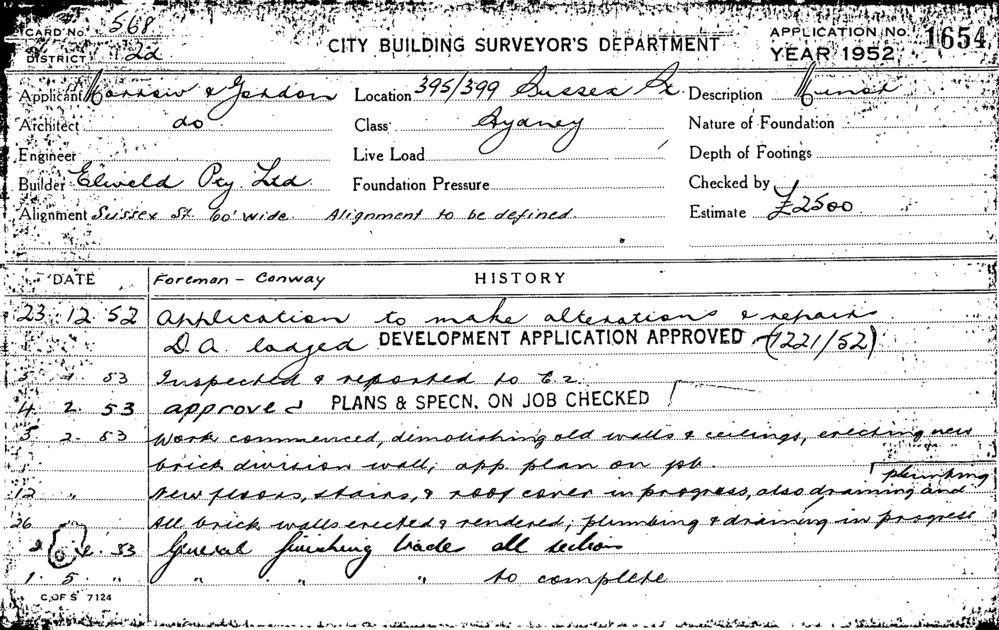 CARD No. 568
DISTRICT 22
CITY BUILDING SURVEYOR'S DEPARTMENT
APPLICATION No. 1654
YEAR 1952
Applicant & Gordon Location 395/399 Sussex St. Description
Architect do Class Sydney Nature of Foundation
Engineer Live Load Depth of Footings
Builder Elweld Pty. Ltd. Foundation Pressure Checked by
Alignment Sussex St. 60' wide. Alignment to be defined. Estimate £2500
DATE Foreman - Conway HISTORY
23. 12. 52 Application to make alterations & repairs.
D.A. lodged DEVELOPMENT APPLICATION APPROVED (1221/52)
5 1. 53 Inspected & reported to
4. 2. 53 approved PLANS & SPECN. ON JOB CHECKED
5 2. 53 Work commenced, demolishing old walls & ceilings, erecting new
brick division wall, app. plan on job.
plumbing
12 " New floors, stairs, & roof cover in progress, also draining and
26 All brick walls erected & rendered, plumbing & draining in progress
2 53 General finishing trades all sections
1. 5. " " " " to complete
C. OF S 7124